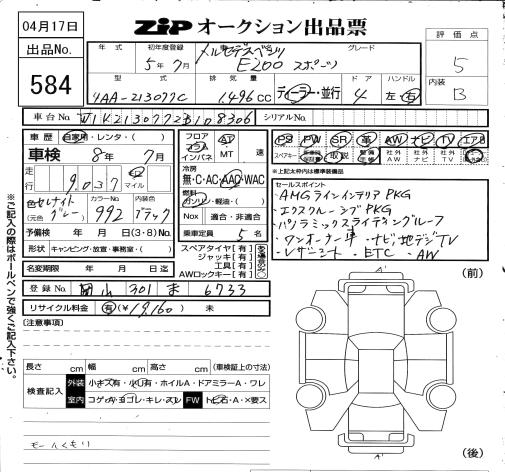 04月17日
出品No.
584
ZIP オークション出品票
年式 初年度登録 車名 グレード
5年7月 メルセデスベンツ E200 スポーツ
型式 排気量 ドア ハンドル
4AA-213077C 1,496cc ディーラー・並行 4 左・右
評価点
5
内装
B
車台No. W1K2130772B108306 シリアルNo.
車歴 自家用・レンタ・( )
車検 8年7月
走行 9,037 km マイル
色 セレナイトグレー (元色) 992 内装色 ブラック
予備検 年 月 日(3・8)No.
形状 キャンピング・放置・事務室・( )
名変期限 年 月 日迄
登録No. 岡山 301 ま 6733
リサイクル料金 有(¥19,160) 未
フロア コラム インパネ AT MT 速
冷房 無・C・AC・AAC・WAC
燃料 ガソリン・軽油・( )
Nox 適合・非適合
乗車定員 5名
スペアタイヤ[有]
ジャッキ[有]
工具[有]
AWロックキー[有]
PS PW SR 革 AW ナビ TV エアB
スペアキー 取説 社外AW 社外ナビ 社外TV
↑上記太枠内は標準装備品
セールスポイント
AMGラインインテリアPKG
エクスクルーシブPKG
パノラミックスライディングルーフ
ワンオーナー車 ナビ 地デジTV
レザーシート ・ETC ・AW
※ご記入の際はボールペンで強くご記入下さい。
[注意事項]
長さ cm 幅 cm 高さ cm (車検証上の寸法)
検査記入 外装 小キズ有・小U有・ホイルA・ドアミラーA・ワレ
室内 コゲA・ヨゴレ・キレ・スレ FW トビ石・A・X要ス
モールくもり
(前)
(後)